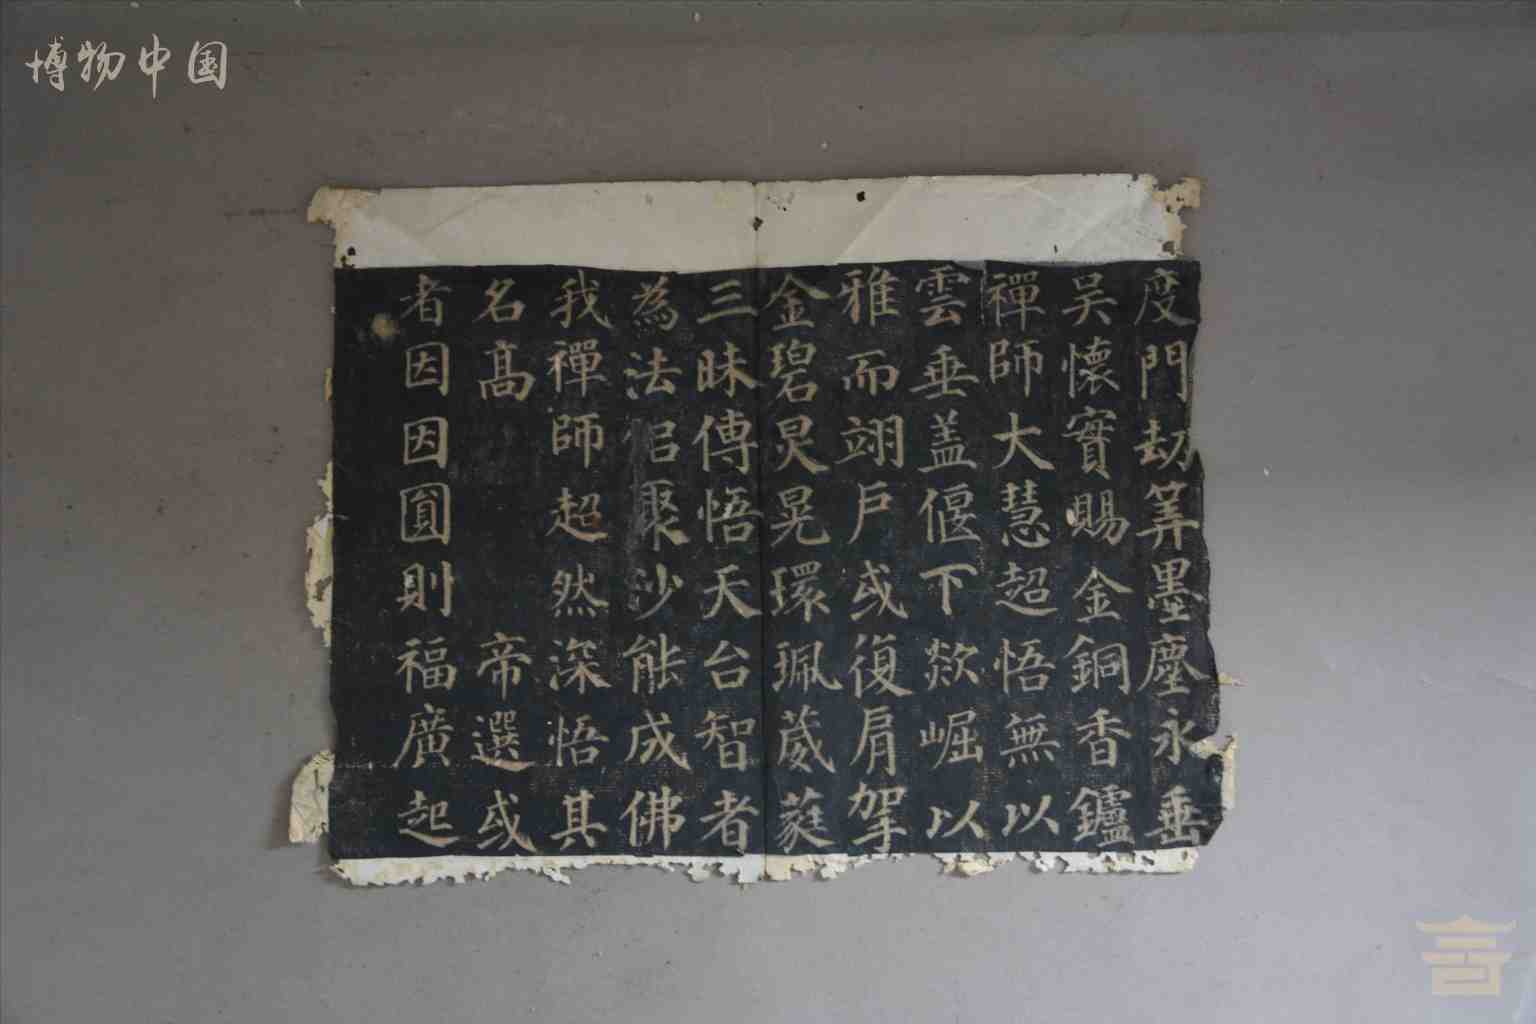 博物中国
度門劫筭墨塵永垂
吴懷寳賜金銅香鑪
禪師大慧超悟無以
雲垂盖偃下欻崛以
雅而翊戶或復肩挐
金碧炅晃環珮葳蕤
三昧傳悟天台智者
為法侣聚沙能成佛
我禪師超然深悟其
名髙 帝選或
者因因圎則福廣起